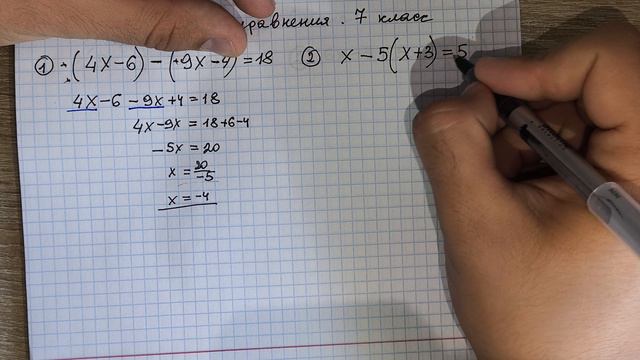 уравнения. 7 класс
① (4x-6) - (+9x-4) = 18
4x-6 -9x+4 = 18
4x-9x = 18+6-4
-5x = 20
x = 20/-5
x = -4
② x - 5(x+3) = 5